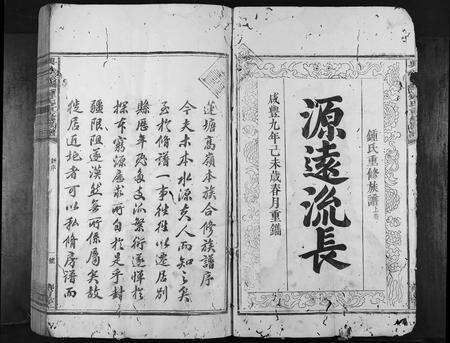 鍾氏重修族譜
源遠流長
咸豐九年己未歲春月重鐫
蓮塘高嶺本族合修族譜序
今夫木本水源夫人而知之矣
至於脩譜一事徃徃以遷居別
縣歷年既多支派繁衍遂憚於
探本窮源為求所自於是乎封
疆限阻遂漠然無所係屬矣故
徙居近地者可以私脩房譜而